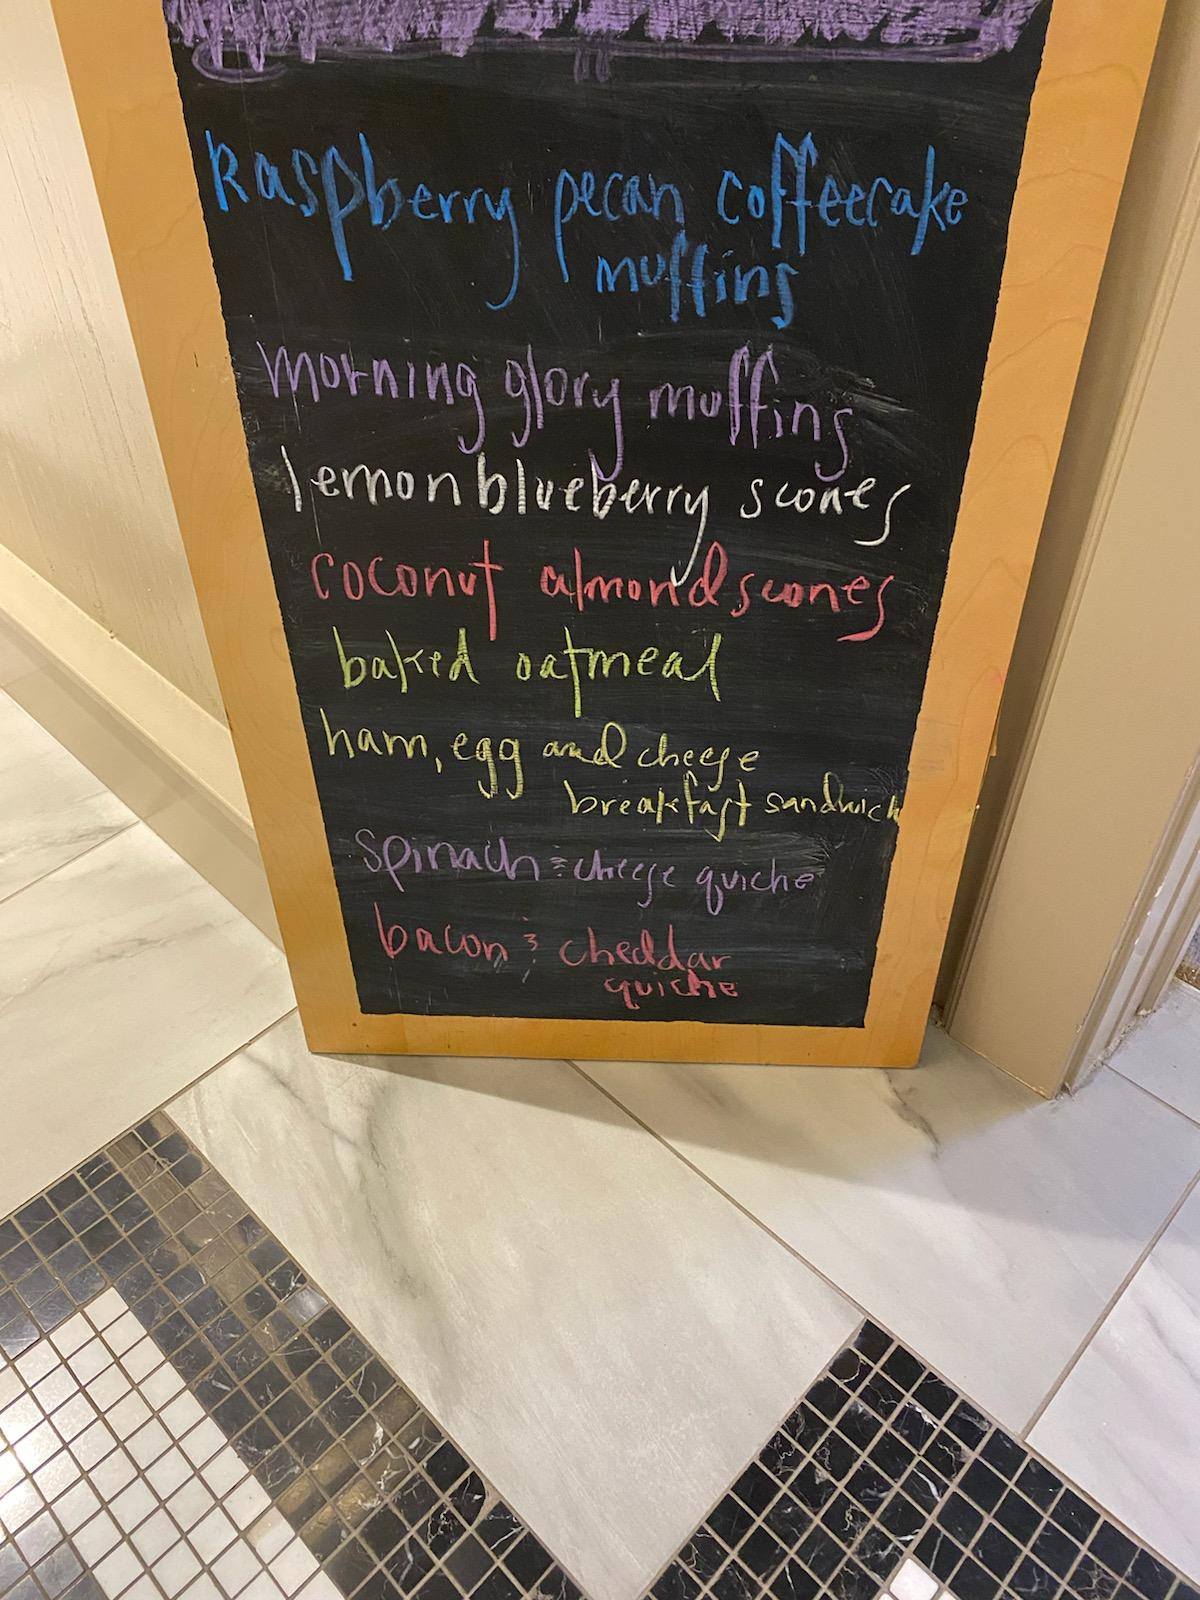 Raspberry pecan coffeecake
muffins
morning glory muffins
lemon blueberry scones
coconut almond scones
baked oatmeal
ham, egg and cheese
breakfast sandwich
spinach & cheese quiche
bacon & cheddar
quiche